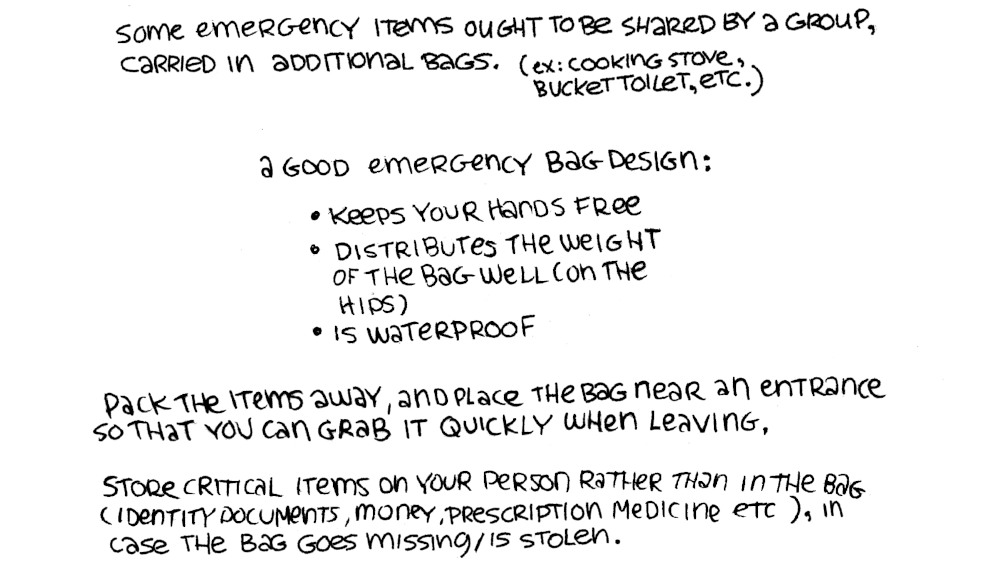 some emergency items ought to be shared by a group,
carried in additional bags. (ex: cooking stove,
bucket toilet, etc.)
a good emergency bag design:
• keeps your hands free
• distributes the weight
of the bag well (on the
hips)
• is waterproof
pack the items away, and place the bag near an entrance
so that you can grab it quickly when leaving.
store critical items on your person rather than in the bag
(identity documents, money, prescription medicine etc), in
case the bag goes missing/is stolen.